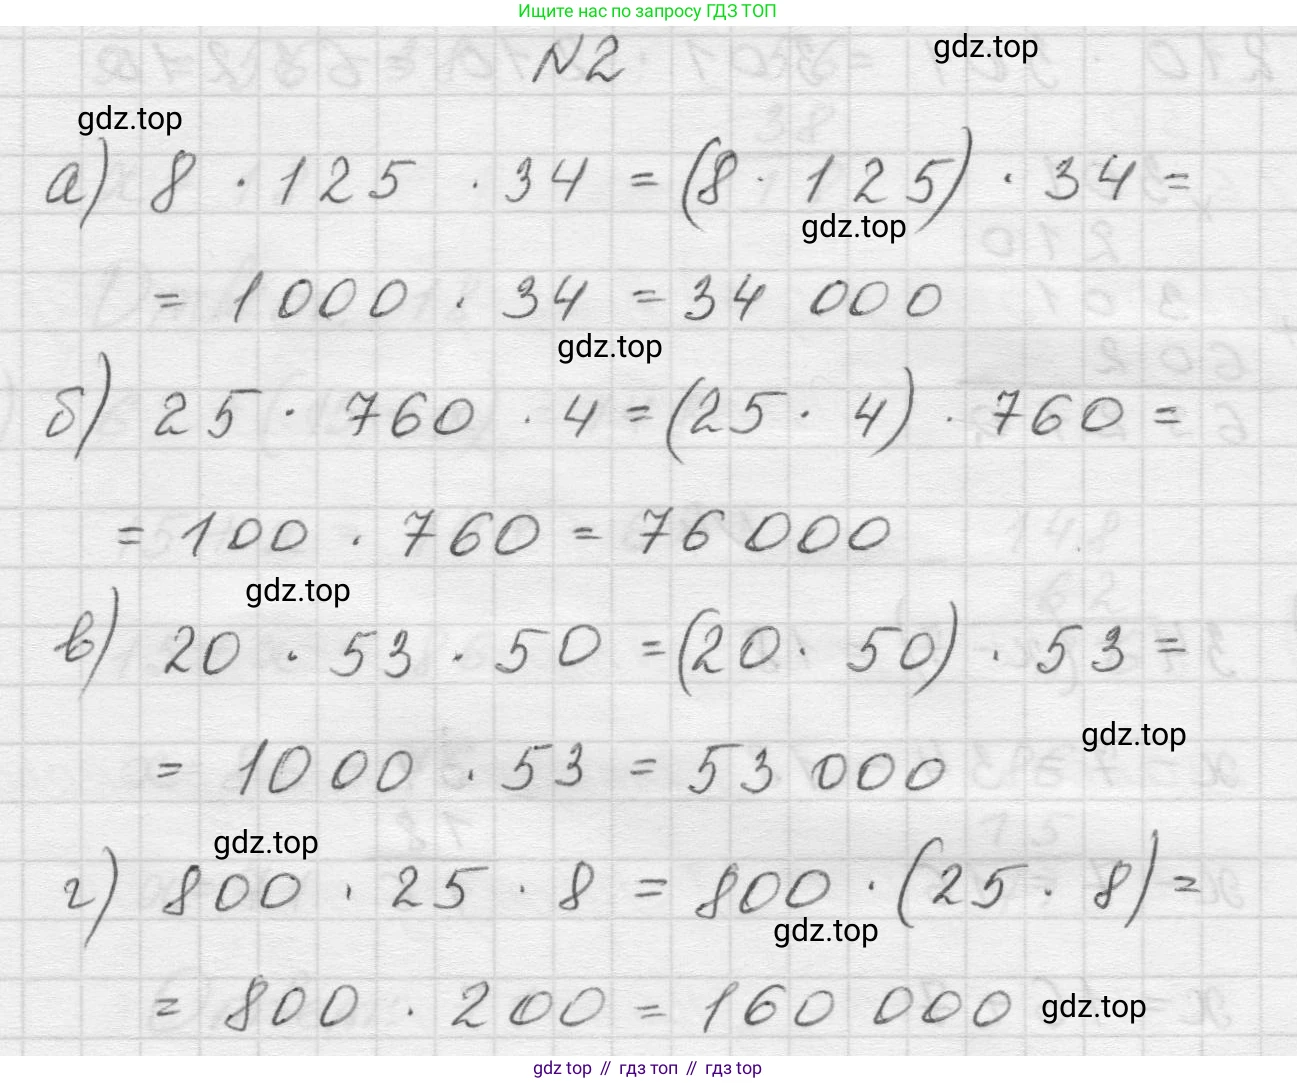 Ищите нас по запросу ГДЗ ТОП
N2
gdz.top
gdz.top
а) 8 · 125 · 34 = (8 · 125) · 34 =
gdz.top
= 1000 · 34 = 34 000
gdz.top
б) 25 · 760 · 4 = (25 · 4) · 760 =
= 100 · 760 = 76 000
gdz.top
в) 20 · 53 · 50 = (20 · 50) · 53 =
gdz.top
= 1000 · 53 = 53 000
gdz.top
г) 800 · 25 · 8 = 800 · (25 · 8) =
gdz.top
= 800 · 200 = 160 000
gdz.top
gdz top // гдз топ // гдз top